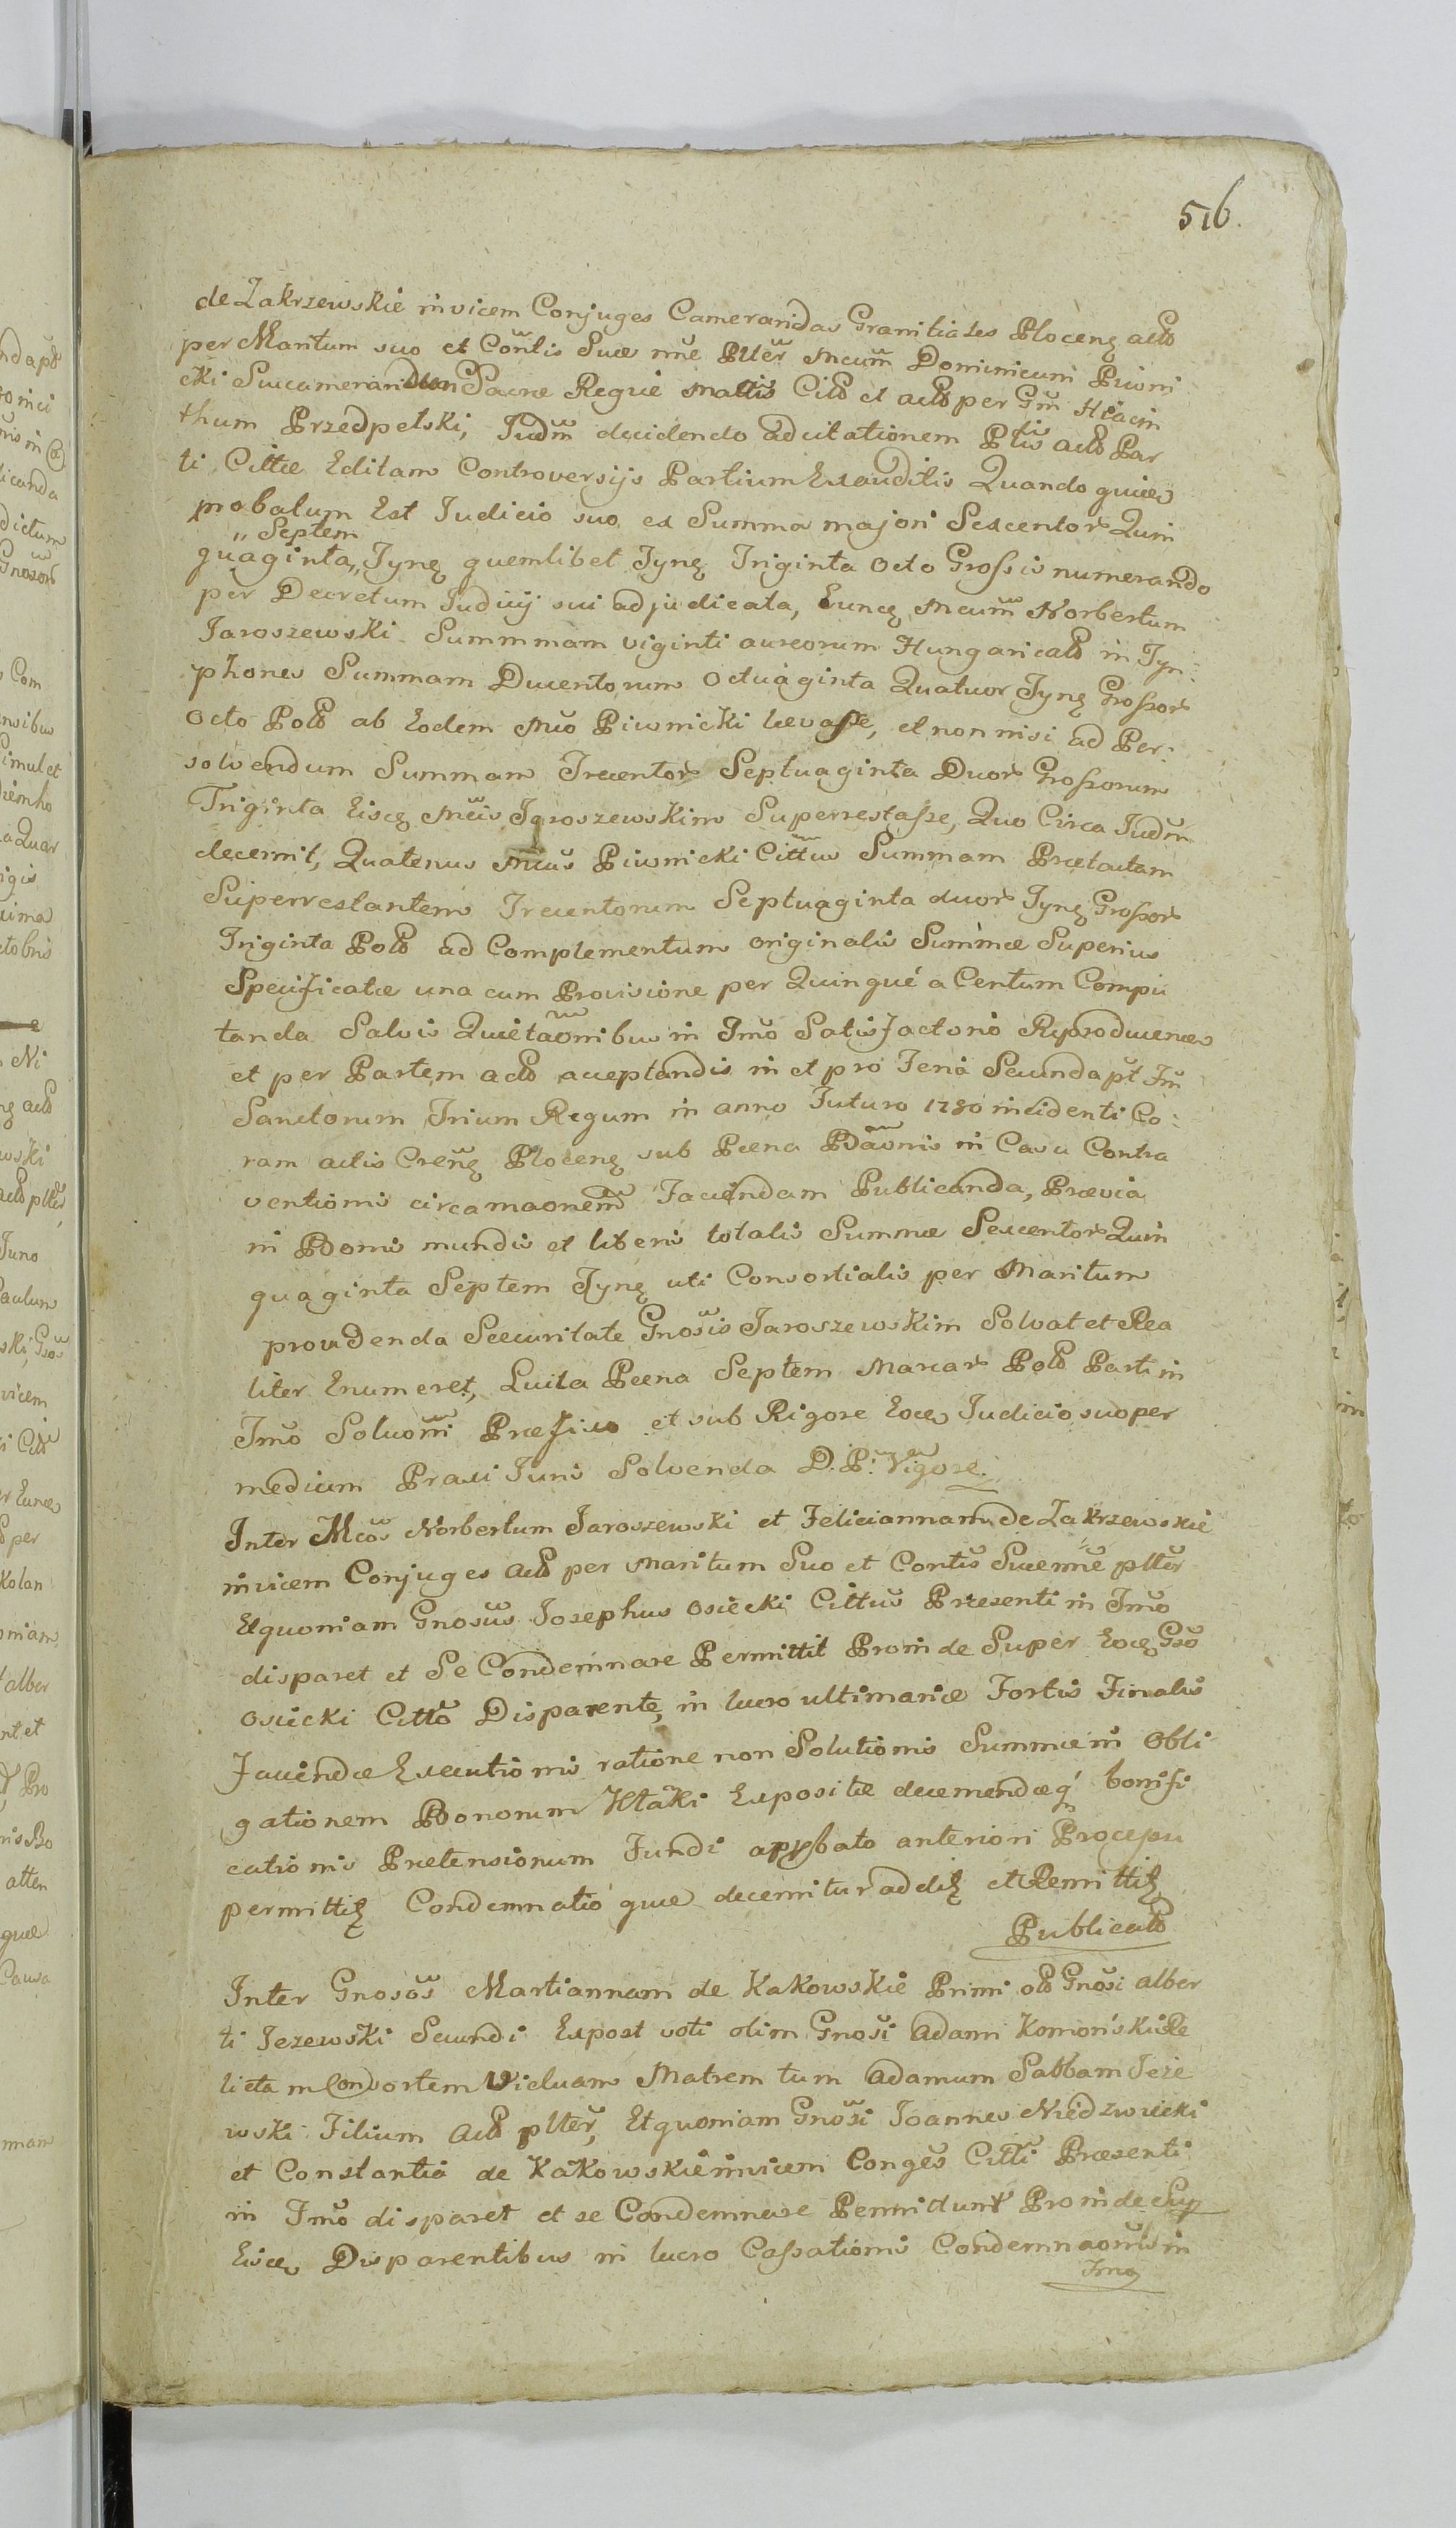 516.
de Zakrzewskie invicem Conjuges Cameraridas Granitiales Plocenę actō
per Maritum suo et Contis Suæ nne Plter Mcum Dominicum Piwni
cki Succamerarium Sacræ Regiæ Mattis Citō et actō per Gm Hiacin
thum Przedpełski, Judm decidendo ad citationem Ptis actō Par
ti Cittæ Editam Controversijs Partium Exauditis Quando quidem
probatum Est Judicio suo ex Summa majori Sexcentor Quin
" Septem
quaginta " Tynę quemlibet Tynę Triginta Octo Grossis numerando
per Decretum Judicij sui adjudicata, Euncę Mcum Norbertum
Jaroszewski Summmam viginti aureorum Hungaricalō in Tyn:
phones Summam Ducentorum Octuaginta Quatuor Tynę Grossor
Octo Polō ab Eodem Mco Piwnicki levasse, et non nisi ad Per:
solvendum Summam Trecentor Septuaginta Duor Grossorum
Triginta Eiscę Mcis Jaroszewskim Superrestasse, Quo Circa Judm
decernit, Quatenus Mcus Piwnicki Cittus Summam Prætactam
Superrestantem Trecentorum Septuaginta duor Tynę Grossor
Triginta Polō ad Complementum originalis Summæ Superius
Specificatæ una cum Provisione per Quinque a Centum Compu
tanda Salvis Quietaonibus in Tmo Satisfactorio Reproducendis
et per Partem actō acceptandis in et pro Feria Secunda pt Fm
Sanctorum Trium Regum in anno Futuro 1780 incidenti Co:
ram actis Crenę Plocenę sub Pæna Bāonis in Casu Contra
ventionis circa maonem Faciendam Publicanda, Prævia
in Bonis mundis et liberis totalis Summæ Sexcentor Quin
quaginta Septem Tynę uti Consortialis per Maritum
providenda Securitate Gnosis Jaroszewskim Solvat et Rea
liter Enumeret, Luita Pæna Septem Marcar Polō Parti in
Tmo Soluoni Præfixo et sub Rigore Eoce Judicio suo per
medium Praxi Juris Solvenda D. P. Vigore.
Inter Mcos Norbertum Jaroszewski et Feliciannam de Zakrzewskie
invicem Conjuges actō per Maritum Suo et Contis Suæ nne plter
Et quoniam Gnosus Josephus Osiecki Cittus Præsenti in Tmo
disparet et Se Condemnare Permittit Proinde Super Eocę Gso
Osiecki Citto Disparente, in lucro ultimariæ Fortis Finalis
Faciendæ Executionis ratione non Solutionis Summæ in Obli
gationem Bonorum Ktaki Expositæ decernendæq bonifi
cationis Prætensionum Fundi approbato anteriori Processu
permittię Condemnatio quæ decernitur additę et Remittię
Publicatō
Inter Gnosos Martiannam de Kakowskie Primi olō Gnosi Alber
ti Jezewski Secundi Expost voti olim Gnosi Adami Komoński Re
lictam Consortem Viduam Matrem tum Adamum Sabbam Jeże
wski Filium actō plter, Et quoniam Gnosi Joannes Niedzwiecki
et Constantia de Kakowskie invicem Conges Citti Præsenti
in Tmo disparet et se Condemnare Permidunt Proinde Sup
Eisce Disparentibus in lucro Cassationis Condemnaonis in
Tmo